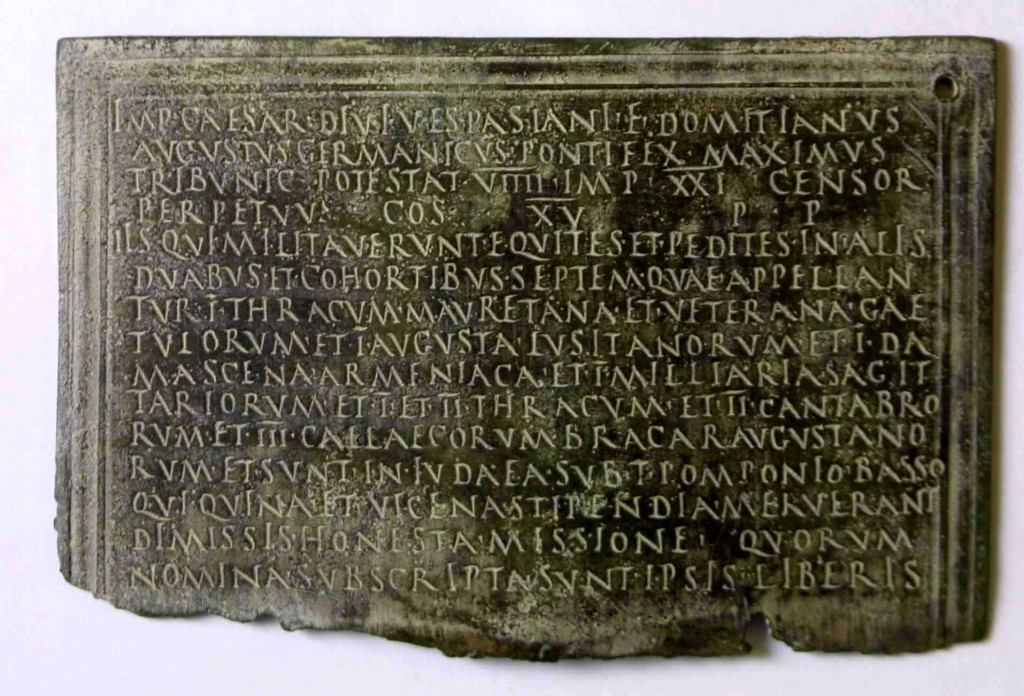 IMP·CAESAR·DIVI·VESPASIANI·F·DOMITIANVS
AVGVSTVS GERMANICVS·PONTIFEX MAXIMVS
TRIBVNIC·POTESTAT V̅I̅I̅I̅I̅·IMP X̅X̅I̅ CENSOR
PERPETVVS COS X̅V̅ P P
IIS·QVI·MILITAVERVNT·EQVITES·ET·PEDITES·IN·ALIS
DVABVS·ET·COHORTIBVS·SEPTEM·QVAE·APPELLAN
TVR·I̅·THRACVM·MAVRETANA·ET·VETERANA·GAE
TVLORVM·ET·I̅·AVGVSTA·LVSITANORVM·ET·I̅·DA
MASCENA·ARMENIACA·ET·I̅·MILLIARIA·SAGIT
TARIORVM·ET·I̅·ET·I̅I̅·THRACVM·ET·I̅I̅·CANTABRO
RVM·ET·I̅I̅I̅·CALLAECORVM·BRACARAVGVSTANO
RVM·ET·SVNT·IN·IVDAEA·SVB·T·POMPONIO·BASSO
QVI·QVINA·ET·VICENA·STIPENDIA·MERVERANT
DIMISSIS·HONESTA·MISSIONE· QVORVM
NOMINA·SVBSCRIPTA·SVNT·IPSIS·LIBERIS